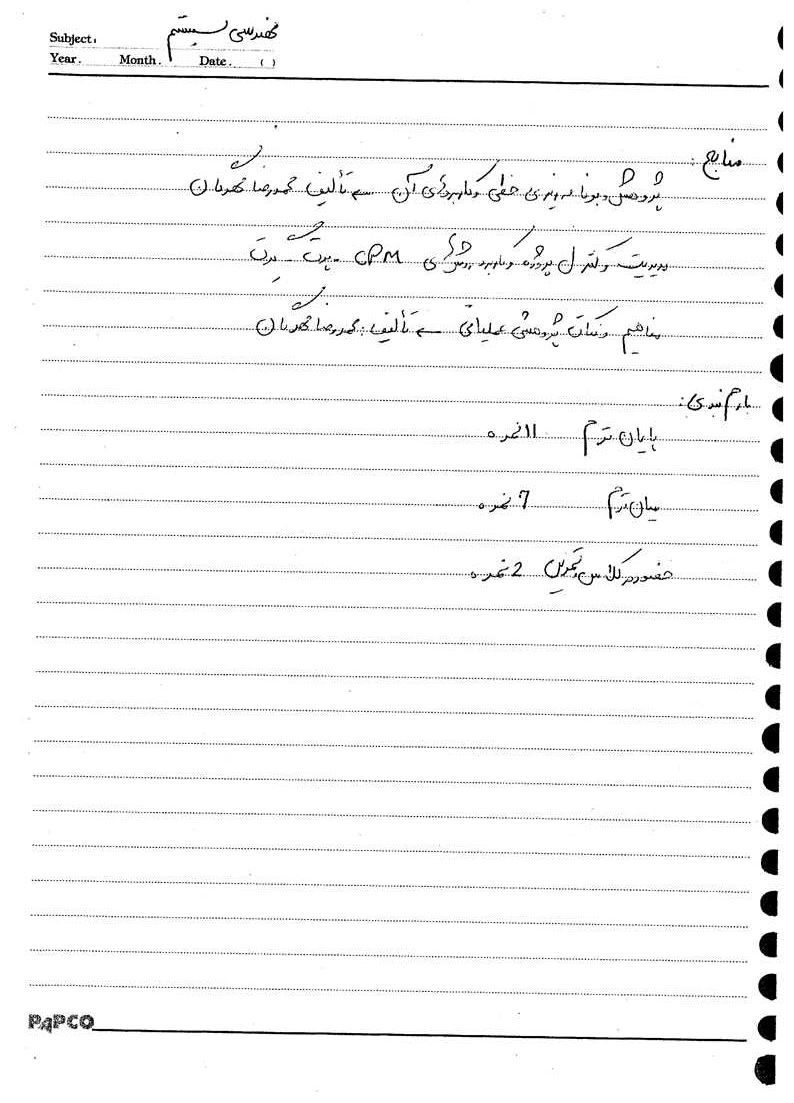 Subject: مهندسی سیستم
Year. Month. Date. ( )
منابع :
پژوهش و برنامه ریزی خطی و کاربردهای آن ← تألیف محمدرضا مهرگان
مدیریت و کنترل پروژه و کاربرد روشهای CPM - پرت - گرت
مفاهیم و نکات پژوهشی عملیاتی ← تألیف : محمدرضا مهرگان
بارم بندی :
پایان ترم 11 نمره
میان ترم 7 نمره
حضور در کلاس و تمرین 2 نمره
PAPCO